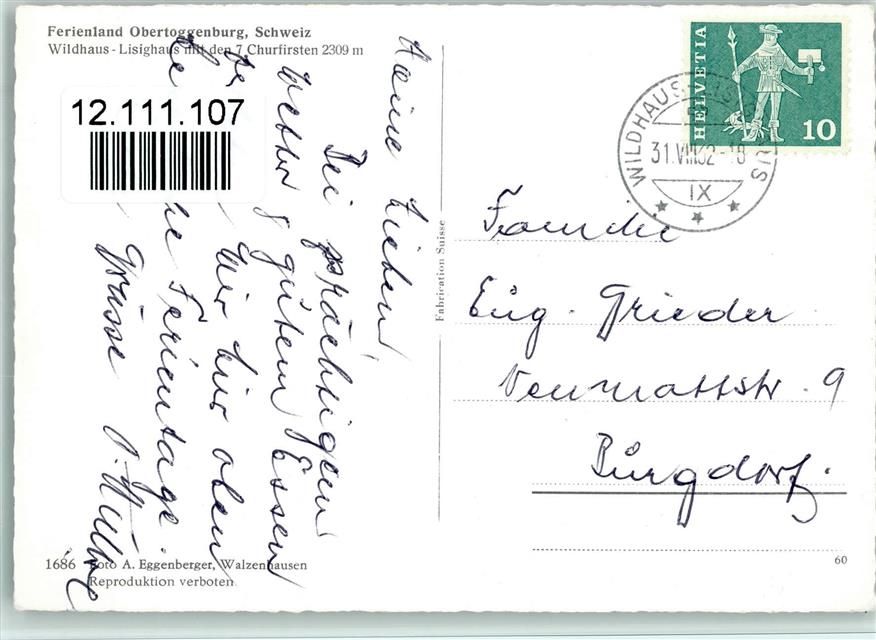 Ferienland Obertoggenburg, Schweiz
Wildhaus - Lisighaus mit den 7 Churfirsten 2309 m
12.111.107
Meine Lieben,
Bei prächtigem
Wetter & gutem Essen
wir hier oben
Ferientage.
Grüsse
1686 Foto A. Eggenberger, Walzenhausen
Reproduktion verboten
Fabrication Suisse
HELVETIA
10
WILDHAUS-LISIGHAUS
31.VIII.62-18
IX
Familie
Eug. Grieder
Neumattstr. 9
Burgdorf.
60